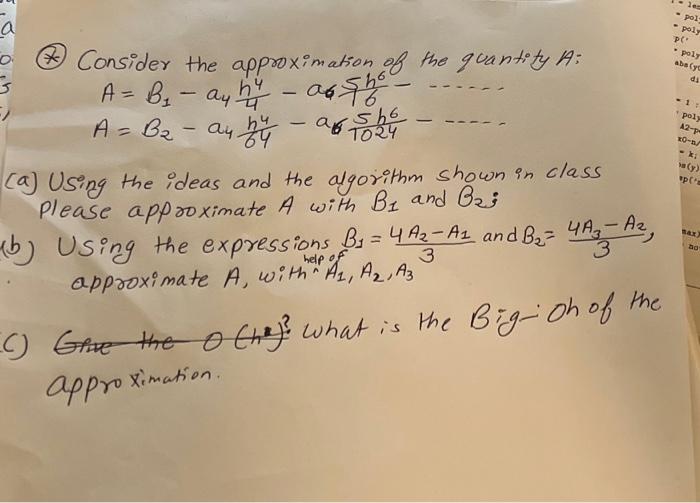 * Consider the approximation of the quantity A:
A = B₁ - a₄ h⁴/4 - a₆ 5h⁶/16 - ......
A = B₂ - a₄ h⁴/64 - a₆ 5h⁶/1024 - .....
(a) Using the ideas and the algorithm shown in class
please approximate A with B₁ and B₂;
(b) Using the expressions B₁ = (4A₂ - A₁)/3 and B₂ = (4A₃ - A₂)/3,
approximate A, with ^ help of A₁, A₂, A₃
C) Give the O (h )? what is the Big-Oh of the
approximation.